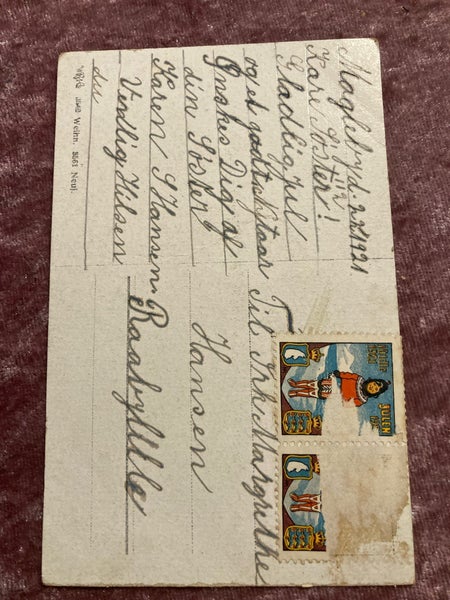 Magleby d. 22/12 1921
Kære Søster!
Gladlig Jul
og et godt nytaar
Ønskes Dig af
din Søster
Karen S Hansen.
Venlig Hilsen
du
Til Frk. Margrethe
Hansen
Raabylille
JULEN
Weihn. 3561 Neuj.